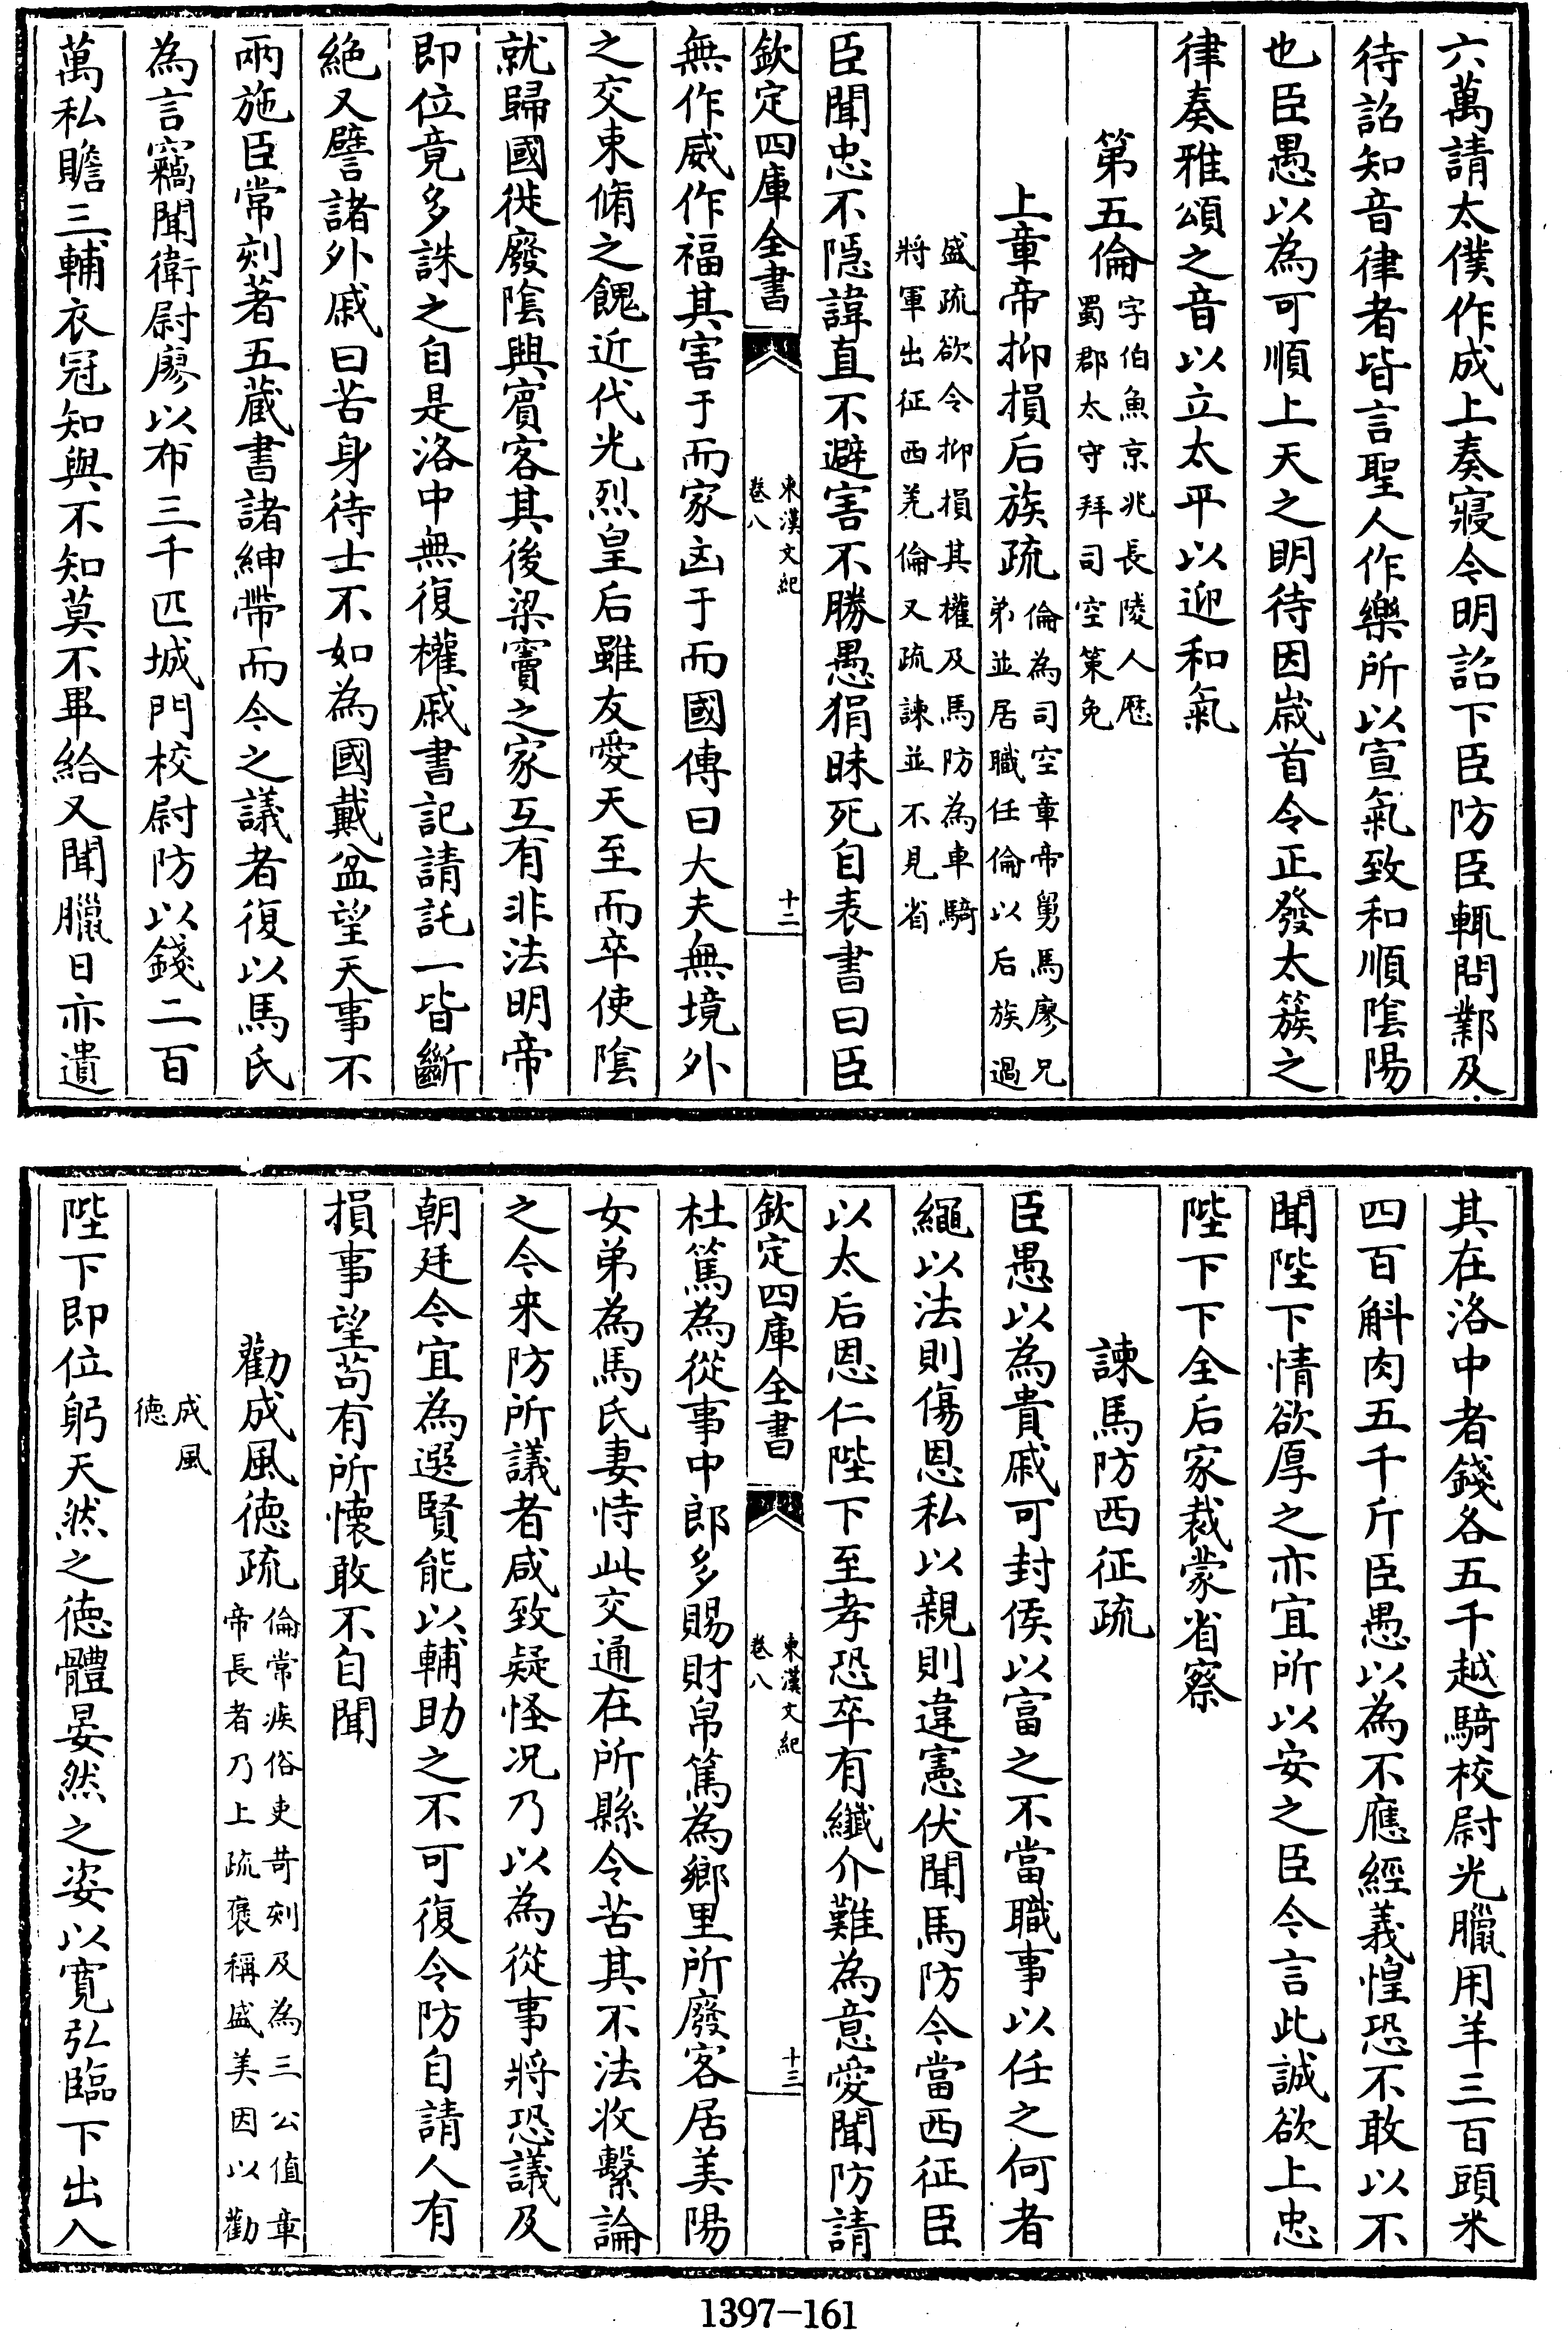 六萬請太僕作成上奏寢令明詔下臣防臣輒問鄴及
待詔知音律者皆言聖人作樂所以宣氣致和順隂陽
也臣愚以為可順上天之明待因嵗首令正發太簇之
律奏雅頌之音以立太平以迎和氣
第五倫字伯魚京兆長陵人歴
蜀郡太守拜司空策免
上章帝抑損后族疏倫為司空章帝舅馬廖兄
弟並居職任倫以后族過
盛疏欲令抑損其權及馬防為車騎
將軍出征西羌倫又疏諫並不見省
臣聞忠不隠諱直不避害不勝愚狷昧死自表書曰臣
欽定四庫全書
東漢文紀
卷八
十二
無作威作福其害于而家凶于而國傳曰大夫無境外
之交束脩之餽近代光烈皇后雖友愛天至而卒使隂
就歸國徙廢隂興賓客其後梁竇之家互有非法明帝
即位竟多誅之自是洛中無復權戚書記請託一皆斷
絶又譬諸外戚曰苦身待士不如為國戴盆望天事不
兩施臣常刻著五蔵書諸紳帶而今之議者復以馬氏
為言竊聞衛尉廖以布三千匹城門校尉防以錢二百
萬私贍三輔衣冠知與不知莫不畢給又聞臘日亦遺
其在洛中者錢各五千越騎校尉光臘用羊三百頭米
四百斛肉五千斤臣愚以為不應經義惶恐不敢以不
聞陛下情欲厚之亦宜所以安之臣今言此誠欲上忠
陛下下全后家裁蒙省察
諫馬防西征疏
臣愚以為貴戚可封侯以富之不當職事以任之何者
繩以法則傷恩私以親則違憲伏聞馬防今當西征臣
以太后恩仁陛下至孝恐卒有纎介難為意愛聞防請
欽定四庫全書
東漢文紀
卷八
十三
杜篤為從事中郎多賜財帛篤為鄉里所廢客居美陽
女弟為馬氏妻恃此交通在所縣令苦其不法收繫論
之今来防所議者咸致疑怪况乃以為從事將恐議及
朝廷今宜為選賢能以輔助之不可復令防自請人有
損事望茍有所懐敢不自聞
勸成風徳疏倫常疾俗吏苛刻及為三公值章
帝長者乃上疏襃稱盛美因以勸
成風
徳
陛下即位躬天然之徳體晏然之姿以寛弘臨下出入
1397-161